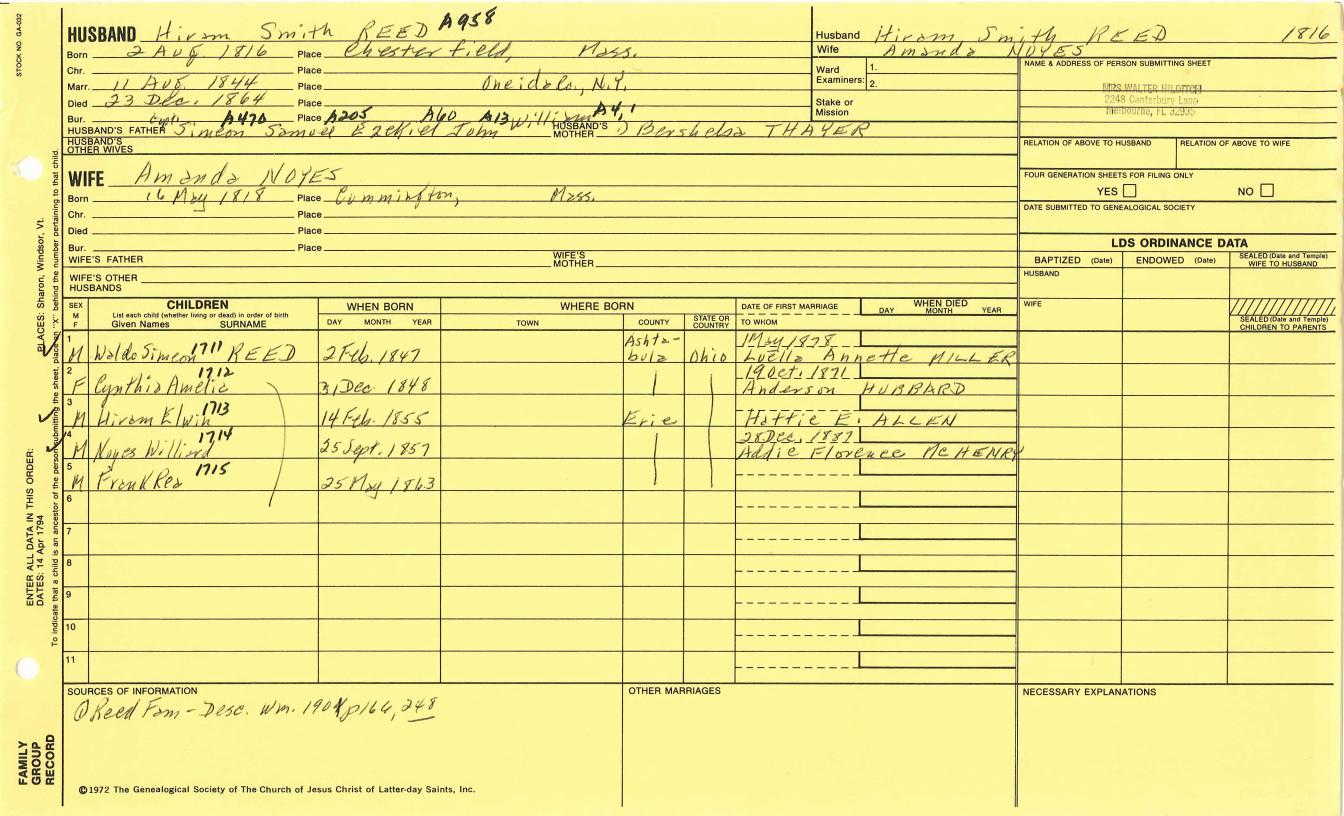 STOCK NO. GA-032
HUSBAND Hiram Smith REED A958
Born 2 Aug. 1816 Place Chesterfield, Mass.
Chr. Place
Marr. 11 Aug. 1844 Place Oneida Co., N.Y.
Died 23 Dec. 1864 Place
Bur. Capt. A470 Place A205 A60 A13 A4,1
HUSBAND'S FATHER Simeon Samuel Ezekiel John William HUSBAND'S MOTHER Bersheba THAYER
HUSBAND'S OTHER WIVES
Husband Hiram Smith REED 1816
Wife Amanda NOYES
Ward Examiners: 1.
2.
Stake or Mission
NAME & ADDRESS OF PERSON SUBMITTING SHEET
MRS WALTER
2248 Canterbury Lane
Melbourne, FL 32935
RELATION OF ABOVE TO HUSBAND RELATION OF ABOVE TO WIFE
FOUR GENERATION SHEETS FOR FILING ONLY
YES NO
DATE SUBMITTED TO GENEALOGICAL SOCIETY
WIFE Amanda NOYES
Born 16 May 1818 Place Cummington, Mass.
Chr. Place
Died Place
Bur. Place
WIFE'S FATHER WIFE'S MOTHER
WIFE'S OTHER HUSBANDS
LDS ORDINANCE DATA
BAPTIZED (Date) ENDOWED (Date) SEALED (Date and Temple) WIFE TO HUSBAND
HUSBAND
WIFE
SEALED (Date and Temple) CHILDREN TO PARENTS
SEX M F CHILDREN WHEN BORN WHERE BORN DATE OF FIRST MARRIAGE WHEN DIED
List each child (whether living or dead) in order of birth
Given Names SURNAME DAY MONTH YEAR TOWN COUNTY STATE OR COUNTRY TO WHOM DAY MONTH YEAR
1 1711 Ashta- 1 May 1878
M Waldo Simeon REED 2 Feb. 1847 bula Ohio Luella Annette MILLER
2 1712 19 Oct. 1871
F Cynthia Amelia 31 Dec. 1848 Anderson HUBBARD
3 1713
M Hiram Elwin 14 Feb. 1855 Erie Hattie E. ALLEN
4 1714 28 Dec. 1887
M Noyes Williard 25 Sept. 1857 Addie Florence McHENRY
5 1715
M Frank Rea 25 May 1863
6
7
8
9
10
11
SOURCES OF INFORMATION
① Reed Fam - Desc. Wm. 1904 p166, 248
OTHER MARRIAGES
NECESSARY EXPLANATIONS
©1972 The Genealogical Society of The Church of Jesus Christ of Latter-day Saints, Inc.
FAMILY GROUP RECORD
ENTER ALL DATA IN THIS ORDER:
DATES: 14 Apr 1794 PLACES: Sharon, Windsor, Vt.
To indicate that a child is an ancestor of the person submitting the sheet, place an "X" behind the number pertaining to that child.